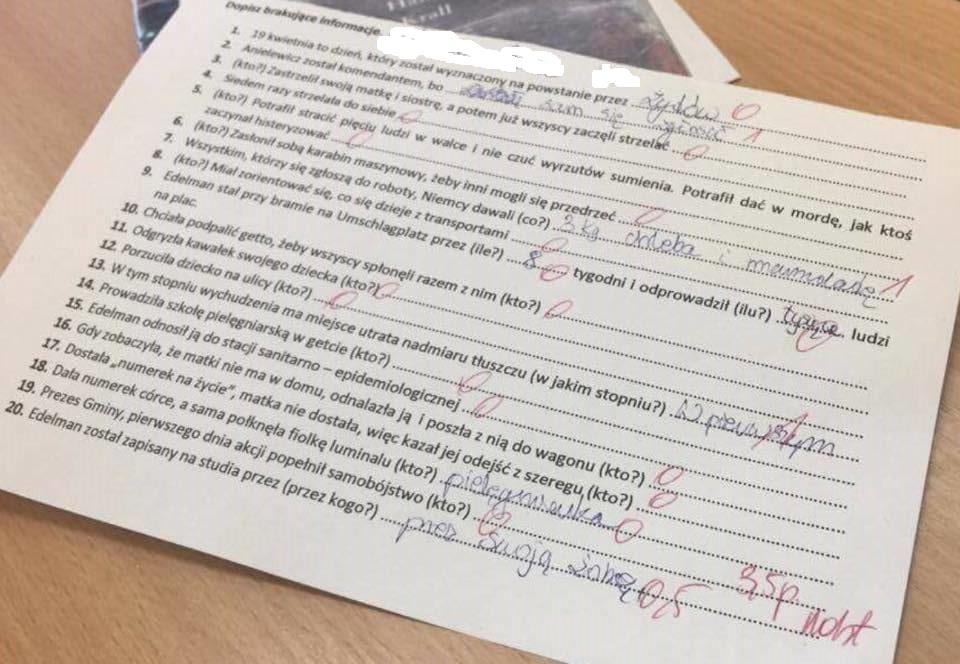 Krall
Dopisz brakujące informacje.
1. 19 kwietnia to dzień, który został wyznaczony na powstanie przez Żydów 0
2. Anielewicz został komendantem, bo sam się zgłosił 1
3. (kto?) Zastrzelił swoją matkę i siostrę, a potem już wszyscy zaczęli strzelać 0
4. Siedem razy strzelała do siebie 0
5. (kto?) Potrafił stracić pięciu ludzi w walce i nie czuć wyrzutów sumienia. Potrafił dać w mordę, jak ktoś
zaczynał histeryzować 0
6. (kto?) Zasłonił sobą karabin maszynowy, żeby inni mogli się przedrzeć 0
7. Wszystkim, którzy się zgłoszą do roboty, Niemcy dawali (co?) 3 kg chleba i marmoladę 1
8. (kto?) Miał zorientować się, co się dzieje z transportami 0
9. Edelman stał przy bramie na Umschlagplatz przez (ile?) 8 0 tygodni i odprowadził (ilu?) tysiąc 0 ludzi
na plac.
10. Chciała podpalić getto, żeby wszyscy spłonęli razem z nim (kto?) 0
11. Odgryzła kawałek swojego dziecka (kto?) 0
12. Porzuciła dziecko na ulicy (kto?) 0
13. W tym stopniu wychudzenia ma miejsce utrata nadmiaru tłuszczu (w jakim stopniu?) W pierwszym 1
14. Prowadziła szkołę pielęgniarską w getcie (kto?) 0
15. Edelman odnosił ją do stacji sanitarno – epidemiologicznej 0
16. Gdy zobaczyła, że matki nie ma w domu, odnalazła ją i poszła z nią do wagonu (kto?) 0
17. Dostała „numerek na życie", matka nie dostała, więc kazał jej odejść z szeregu (kto?) 0
18. Dała numerek córce, a sama połknęła fiolkę luminalu (kto?) pielęgniarka 0
19. Prezes Gminy, pierwszego dnia akcji popełnił samobójstwo (kto?) 0
20. Edelman został zapisany na studia przez (przez kogo?) przez swoją żonę 0,5
3,5p.
ndst